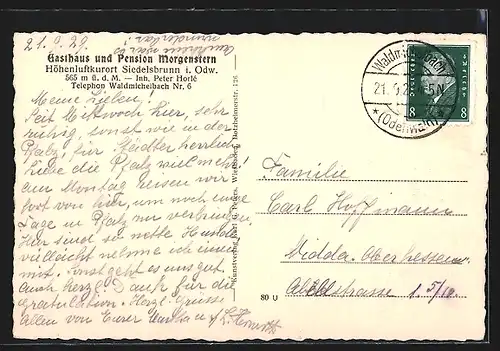 21.9.29
Gasthaus und Pension Morgenstern
Höhenluftkurort Siedelsbrunn i. Odw.
565 m ü. d. M. — Inh. Peter Horlé
Telephon Waldmichelbach Nr. 6
Meine Lieben!
Seit Mittwoch hier, sehr
ruhig, sonst wie in der
Pfalz, für Städter herrlich.
Liebe die Pfalz viel mehr!
Am Montag reisen wir
fort von hier, um noch einige
Tage in Pfalz zu verbringen.
Hier sind so nette Hunde
vielleicht nehme ich einen
mit. Sonst geht es uns gut.
Auch herzl. Dank für die
Gratulation. Herzl. Grüsse
Allen von Eurer
Kunstverlag Karl G. Peters, Wiesbaden, Dotzheimerstr. 126
80 U
Waldmichelbach
21. 9. 29 5-N
* (Odenwald) *
Deutsches Reich
8 8
Familie
Carl Hoffmann
Nidda. Oberhessen.